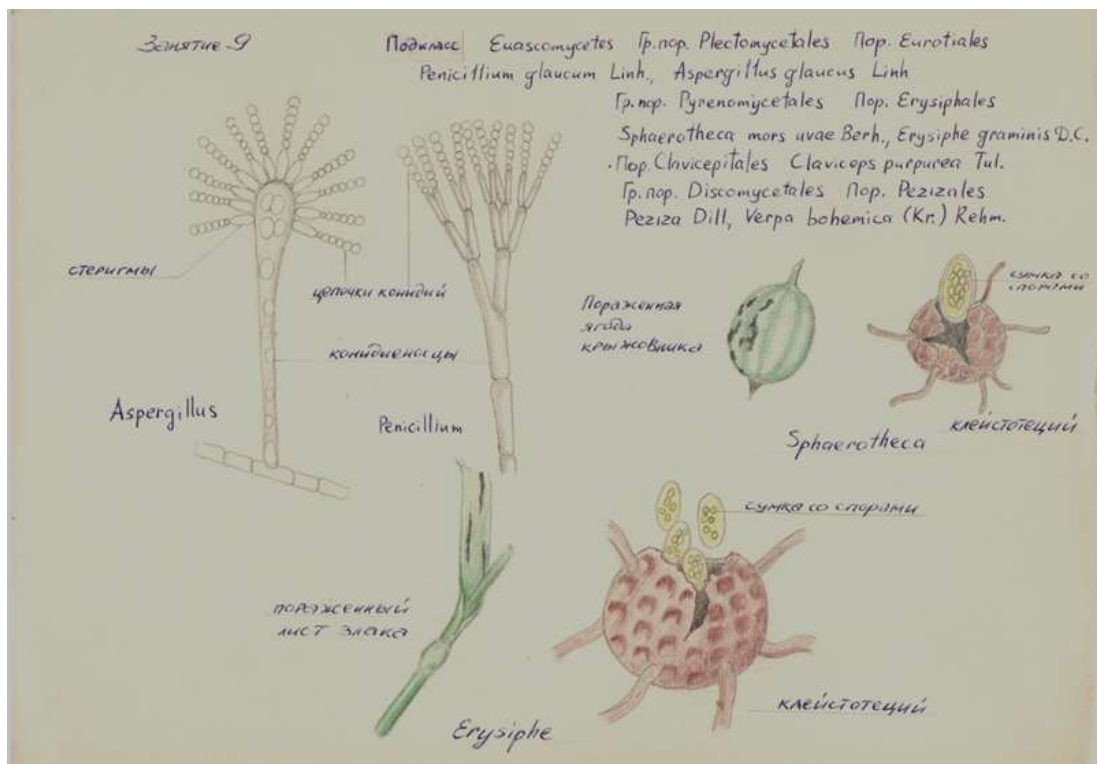 Занятие-9
Подкласс Euascomycetes Гр.пор. Plectomycetales Пор. Eurotiales
Penicillium glaucum Linh., Aspergillus glaucus Linh
Гр.пор. Pyrenomycetales Пор. Erysiphales
Sphaerotheca mors uvae Berh., Erysiphe graminis D.C.
Пор. Clavicepitales Claviceps purpurea Tul.
Гр.пор. Discomycetales Пор. Pezizales
Peziza Dill, Verpa bohemica (Kr.) Rehm.
стеригмы
цепочки конидий
конидиеносцы
Aspergillus
Penicillium
Пораженная
ягода
крыжовника
сумка со
спорами
клейстотеций
Sphaerotheca
сумка со спорами
пораженный
лист злака
клейстотеций
Erysiphe